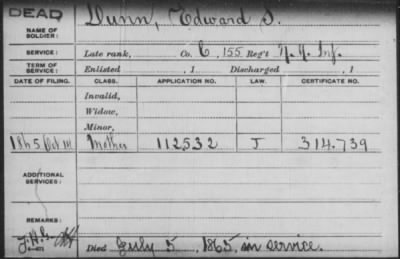 DEAD
NAME OF SOLDIER: Dunn, Edward S.
SERVICE: Late rank, Co. C, 155 Reg't N. Y. Inf.
TERM OF SERVICE: Enlisted , 1 Discharged , 1
DATE OF FILING. CLASS. APPLICATION NO. LAW. CERTIFICATE NO.
Invalid,
Widow,
Minor,
1865 Oct Mother 112532 J 314.739
ADDITIONAL SERVICES:
REMARKS:
Died July 5, 1865, in service.